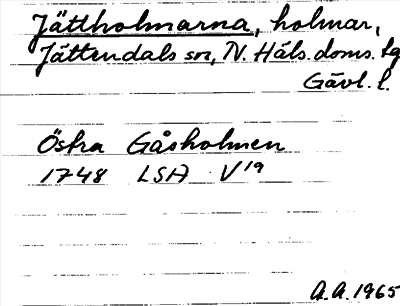 Jättholmarna, holmar,
Jättendals sn, N. Häls. doms. tg
Gävl. l.
Östra Gåsholmen
1748 LSA V19
A.A. 1965